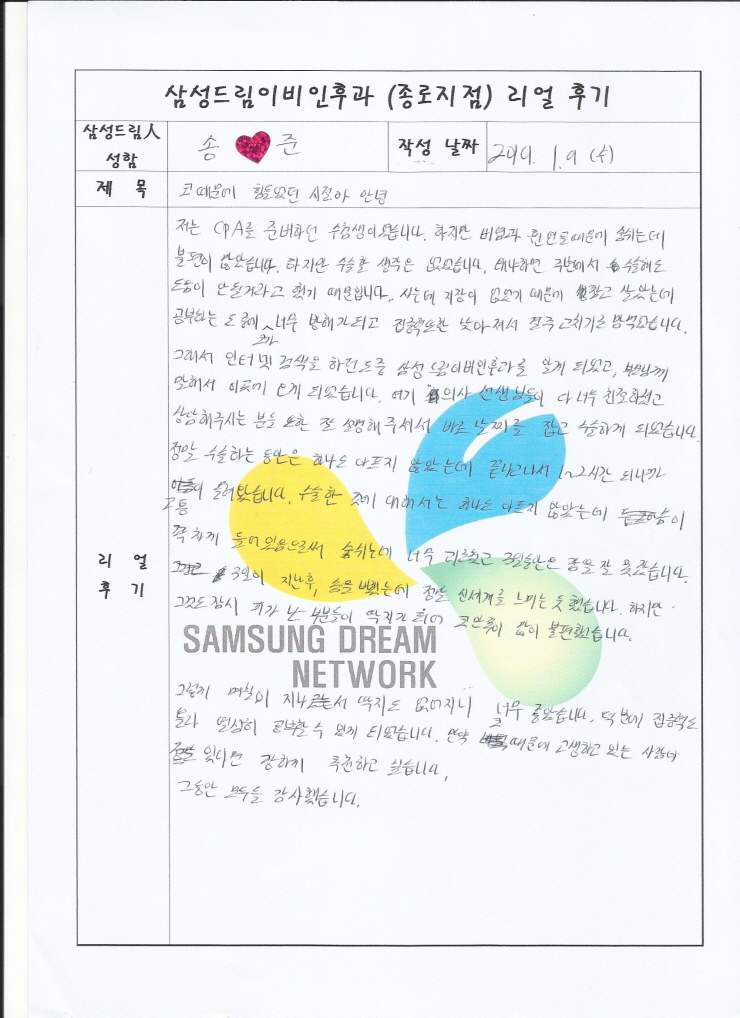 삼성드림이비인후과 (종로지점) 리얼 후기
삼성드림人
성함
송 준
작성 날짜
2019. 1. 9 (수)
제 목
코 때문에 힘들었던 시절아 안녕
리 얼
후 기
저는 CPA를 준비하던 수험생이었습니다. 하지만 비염과 휜 연골때문에 숨쉬는데
불편이 많았습니다. 하지만 수술할 생각은 없었습니다. 왜냐하면 주변에서 수술해도
도움이 안될거라고 했기 때문입니다. 사는데 지장이 없었기 때문에 참고 살았는데
공부하는 도중에 코가 너무 방해가되고 집중력또한 낮아져서 결국 고치기로 마음먹었습니다.
그래서 인터넷 검색을 하던도중 삼성드림이비인후과를 알게 되었고, 부모님께
말해서 이곳에 오게 되었습니다. 여기 의사 선생님들이 다 너무 친절하셨고
상담해주시는 분들 또한 잘 설명해주셔서 바로 날짜를 잡고 수술하게 되었습니다.
정말 수술하는 동안은 하나도 아프지 않았는데 끝나고나서 1~2시간 되니까
고통이 들어왔습니다. 수술한 것에 대해서는 하나도 아프지 않았는데 이
꽉차게 들어있음으로써 숨쉬는데 너무 괴로웠고 3일동안은 잠을 잘 못잤습니다.
3일이 지난후, 솜을 뺐는데 정말 신세계를 느끼는 듯 했습니다. 하지만
그것도 잠시 피가 난 부분들이 딱지가 되어 코안쪽이 많이 불편했습니다.
SAMSUNG DREAM
NETWORK
그렇게 며칠이 지나면서 딱지도 없어지니 너무 좋았습니다. 덕분에 집중력도
올라 열심히 공부할 수 있게 되었습니다. 만약 코 때문에 고생하고 있는 사람이
있다면 강하게 추천하고 싶습니다.
그동안 모두들 감사했습니다.